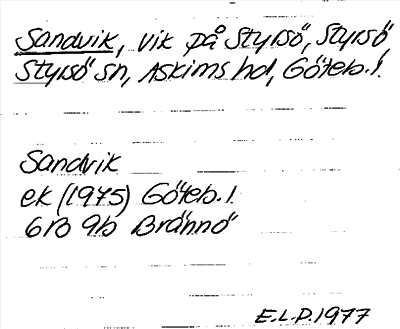 Sandvik, vik på Styrsö, Styrsö,
Styrsö sn, Askims hd, Göteb. l.
Sandvik
ek (1975) Göteb. l.
6B 9b Brännö
E.L.P. 1977